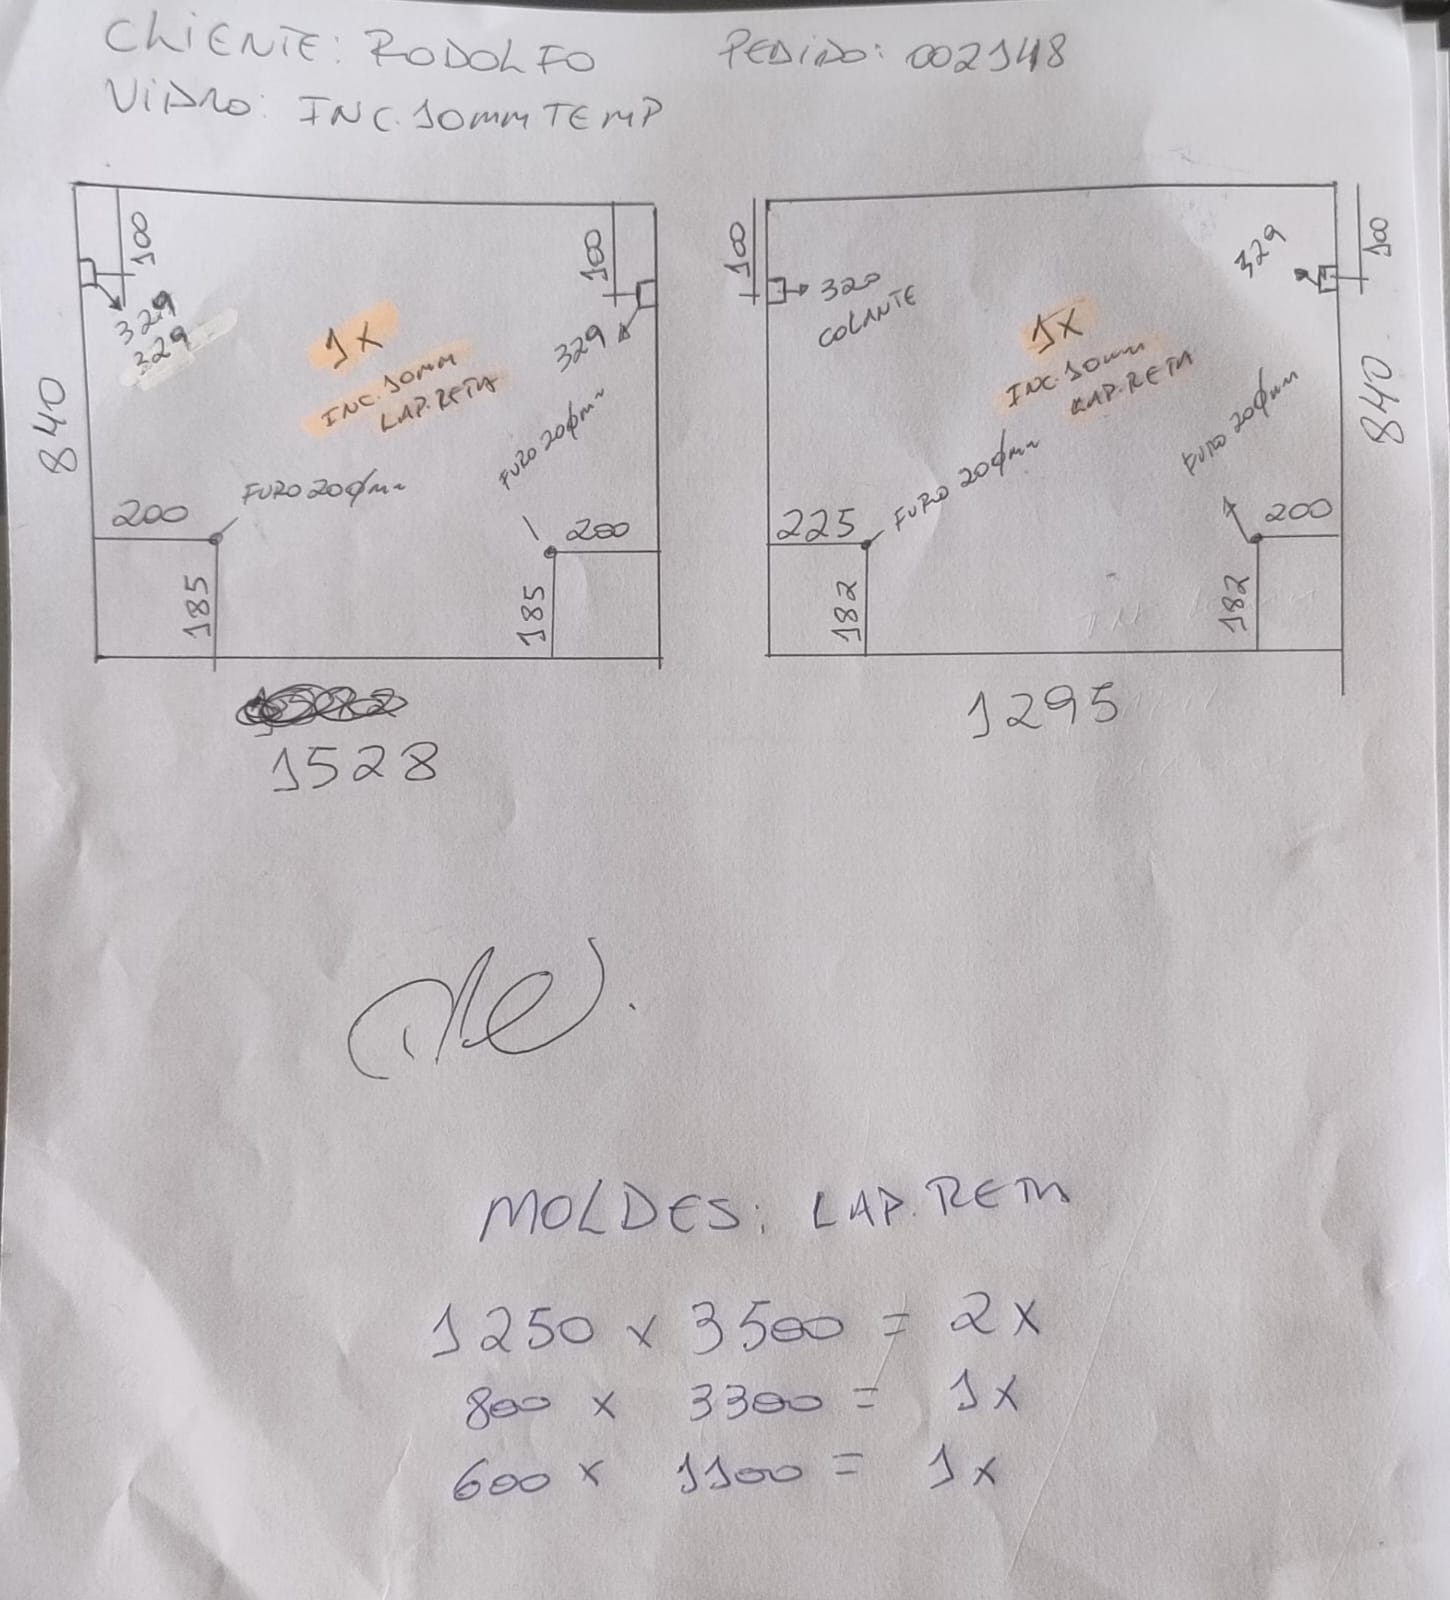 CLIENTE: RODOLFO
PEDIDO: 002148
VIDRO: INC. 10MM TEMP
100
329
329
840
1X
INC. 10MM
LAP. RETA
100
329
200
FURO 20ømm
185
FURO 20ømm
200
185
1528
100
320
COLANTE
1X
INC. 10mm
LAP. RETA
329
100
840
225
FURO 20ømm
182
FURO 20ømm
200
182
1295
MOLDES: LAP. RETA
1250 x 3500 = 2x
800 x 3300 = 1x
600 x 1100 = 1x